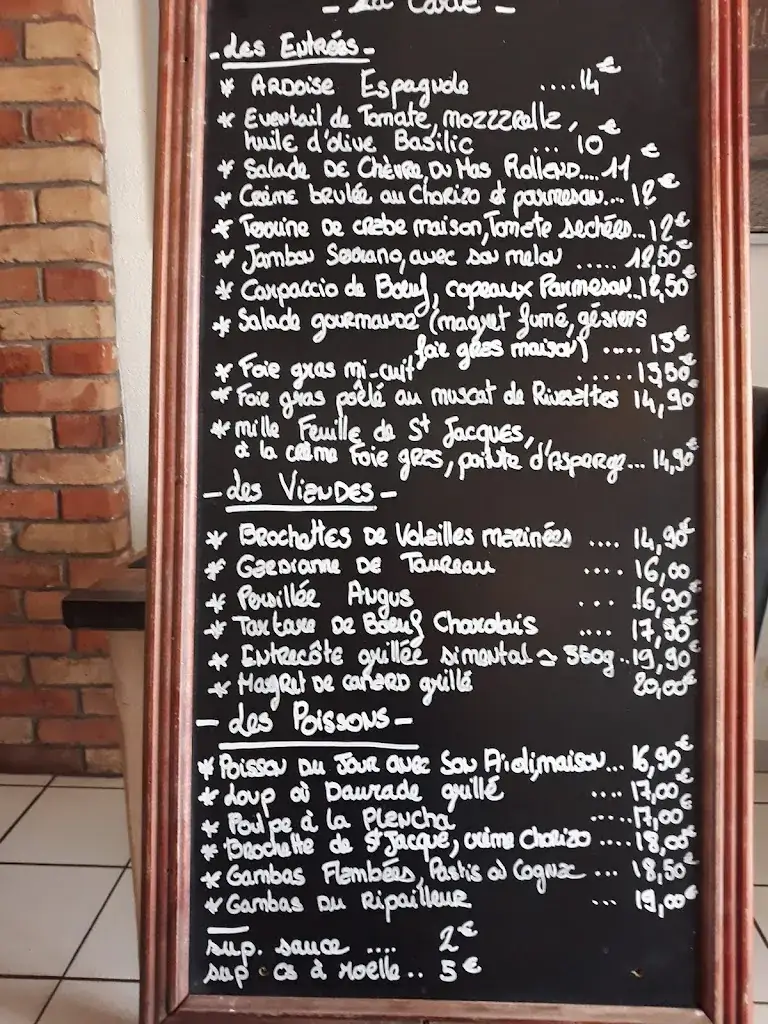 - La Carte -
- Les Entrées -
* Ardoise Espagnole ....14€
* Eventail de Tomate, mozzzrella,
huile d'olive Basilic ... 10€
* Salade de Chèvre, Du Mas Rolland....11€
* Crème brulée au Chorizo et parmesan... 12€
* Terrine de crabe maison, Tomate sechées...12€
* Jambon Serrano, avec son melon ..... 12,50€
* Carpaccio de Bœuf, copeaux Parmesan..12,50€
* Salade gourmande (magret fumé, gésiers
foie gras maison) ..... 13€
* Foie gras mi-cuit ......13,50€
* Foie gras poêlé au muscat de Rivesaltes 14,90€
* mille Feuille de St Jacques,
à la crème Foie gras, pointe d'Asperge... 14,90€
- Les Viandes -
* Brochettes de Volailles marinées .... 14,90€
* Gardianne de Taureau .... 16,00
* Persillée Angus ... 16,90€
* Tartare de Bœuf Charolais .... 17,50€
* Entrecôte grillée simental ≃ 350g..19,90€
* Magret de canard grillé 20,00€
- Les Poissons -
* Poisson du Jour avec Son Aïoli maison... 16,90€
* Loup où Daurade grillé .... 17,00€
* Poulpe à la Plancha ....17,00€
* Brochette de St Jacque, crème Chorizo ....18,00€
* Gambas Flambées, Pastis où Cognac ... 18,50€
* Gambas du Ripailleur ... 19,00€
sup. sauce .... 2€
sup os à Moelle.. 5€